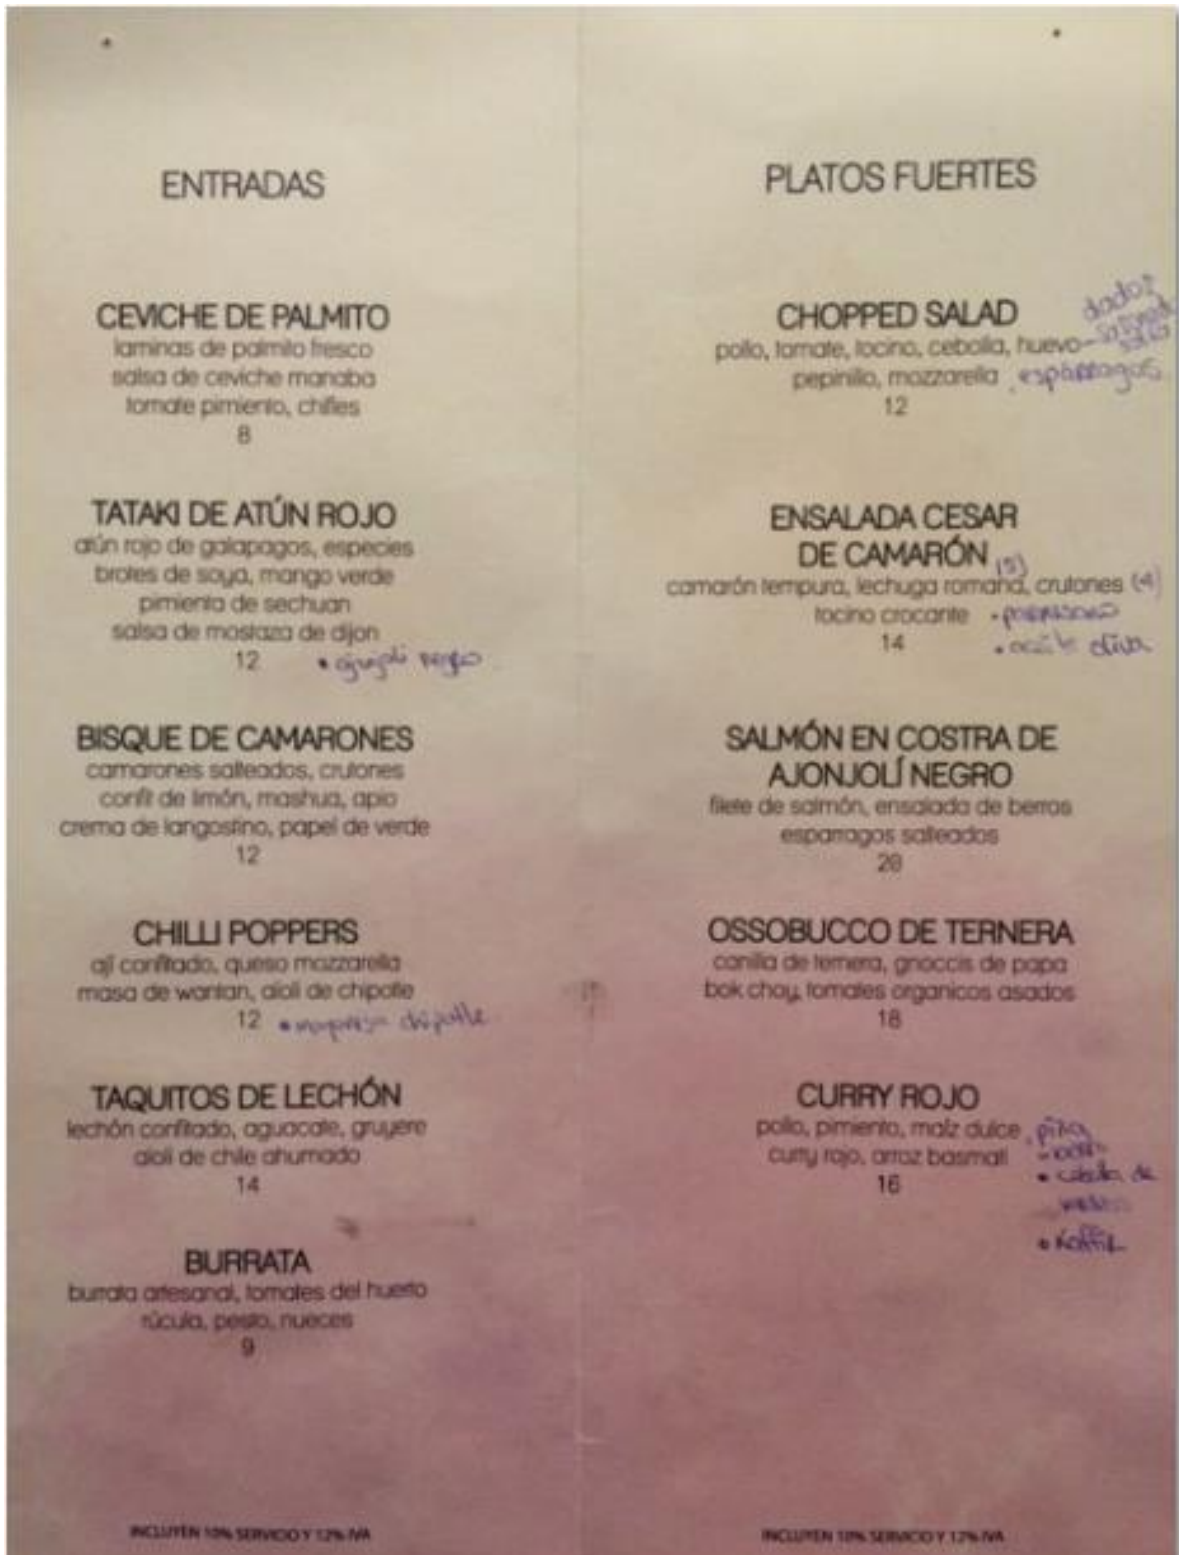 ENTRADAS
CEVICHE DE PALMITO
laminas de palmito fresco
salsa de ceviche manaba
tomate pimiento, chifles
8
TATAKI DE ATÚN ROJO
atún rojo de galapagos, especies
brotes de soya, mango verde
pimienta de sechuan
salsa de mostaza de dijon
12 • negro
BISQUE DE CAMARONES
camarones salteados, crutones
confit de limón, mashua, apio
crema de langostino, papel de verde
12
CHILLI POPPERS
ají confitado, queso mozzarella
masa de wantan, aioli de chipotle
12 • chipotle
TAQUITOS DE LECHÓN
lechón confitado, aguacate, gruyere
aioli de chile ahumado
14
BURRATA
burrata artesanal, tomates del huerto
rúcula, pesto, nueces
9
INCLUYEN 10% SERVICIO Y 12% IVA
PLATOS FUERTES
CHOPPED SALAD
dados
pollo, tomate, tocino, cebolla, huevo
pepinillo, mozzarella , espárragos
12
ENSALADA CESAR
DE CAMARÓN (5)
camarón tempura, lechuga romana, crutones (4)
tocino crocante • parmesano
14 • aceite oliva
SALMÓN EN COSTRA DE
AJONJOLÍ NEGRO
filete de salmón, ensalada de berros
esparragos salteados
20
OSSOBUCCO DE TERNERA
canilla de ternera, gnoccis de papa
bok choy, tomates organicos asados
18
CURRY ROJO
pollo, pimiento, maíz dulce , piña
curry rojo, arroz basmati
16 • cebolla de
• Kaffir
INCLUYEN 10% SERVICIO Y 12% IVA